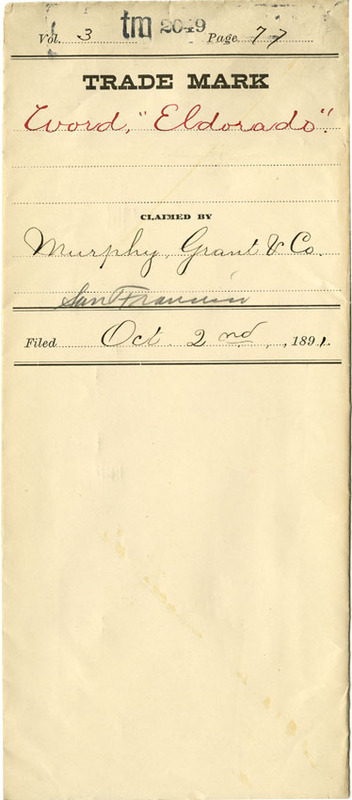 Vol. 3 tm 2049 Page 77
TRADE MARK
Word, "Eldorado".
CLAIMED BY
Murphy, Grant & Co.
San Francisco
Filed Oct. 2nd, 1891.